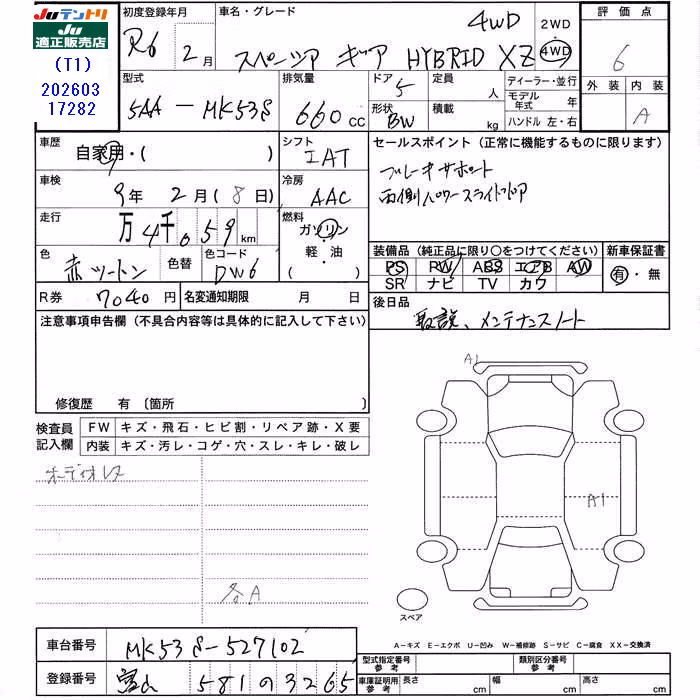 Juテントリ
Ju
適正販売店
(T1)
202603
17282
初度登録年月
R6 2月
車名・グレード
スペーシア ギア HYBRID XZ
4WD
2WD
・
4WD
評価点
6
外装 内装
A
型式
5AA-MK53S
排気量
660cc
ドア
5
形状
BW
定員
人
積載
kg
ディーラー・並行
モデル年式 年
ハンドル 左・右
車歴
自家用・( )
シフト
IAT
セールスポイント(正常に機能するものに限ります)
ブレーキサポート
両側パワースライドドア
車検
9年 2月(8日)
冷房
AAC
走行
万4千059km
燃料
ガソリン
軽・油
( )
色
赤ツートン
色替
色コード
DW6
装備品(純正品に限り○をつけてください)
PS RW ABS エアB AW
SR ナビ TV カワ
新車保証書
有・無
R券 7040円
名変通知期限 月 日
後日品
取説、メンテナンスノート
注意事項申告欄(不具合内容等は具体的に記入して下さい)
修復歴 有〔箇所 〕
検査員
記入欄
FW キズ・飛石・ヒビ割・リペア跡・X要
内装 キズ・汚レ・コゲ・穴・スレ・キレ・破レ
オーディオレス
各A
A1
A1
スペア
A-キズ E-エクボ U-凹み W-補修跡 S-サビ C-腐食 XX-交換済
車台番号 MK53S-527102
登録番号 富山 581 の 3265
型式指定番号
参考
類別区分番号
参考
車庫証明用
参考
長さ cm 幅 cm 高さ cm